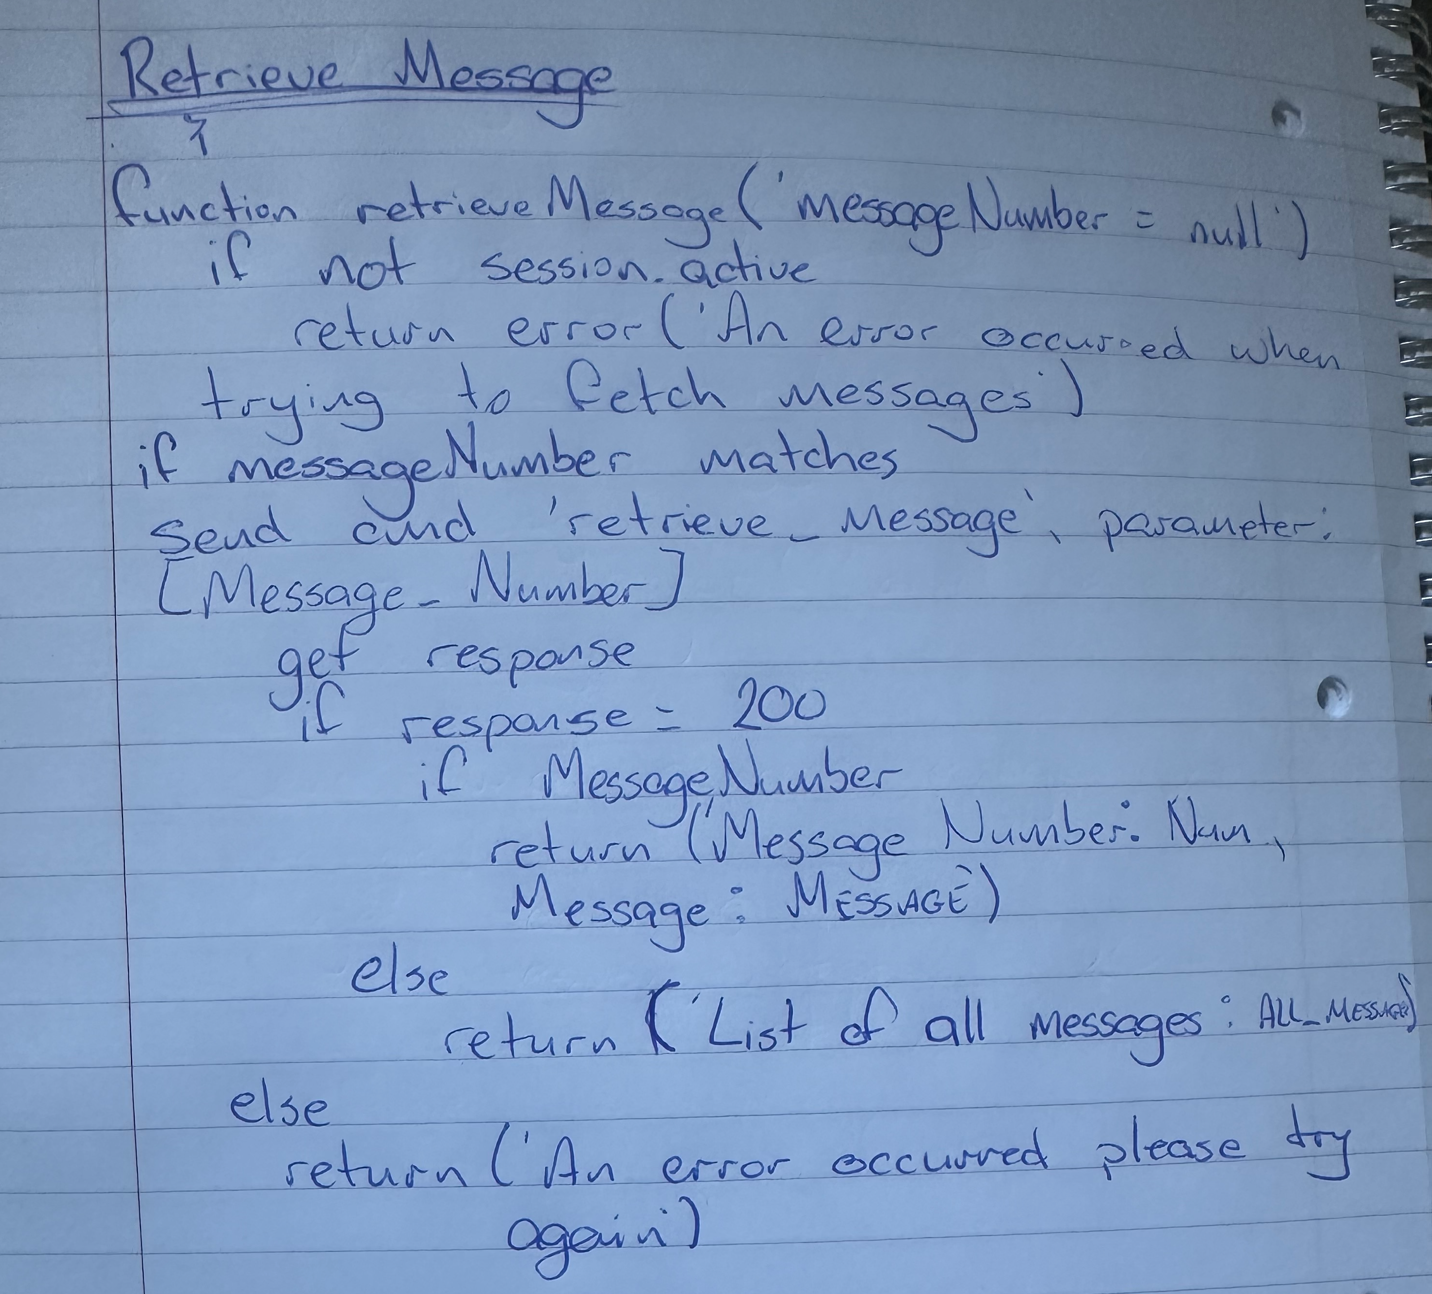 Retrieve Message
function retrieveMessage('messageNumber = null')
if not session.active
return error('An error occurred when
trying to fetch messages')
if messageNumber matches
send cmd 'retrieve_Message', parameter:
[Message_Number]
get response
if response = 200
if MessageNumber
return ('Message Number: Num,
Message: MESSAGE')
else
return ('List of all messages: ALL_MESSAGES)
else
return ('An error occurred please try
again')